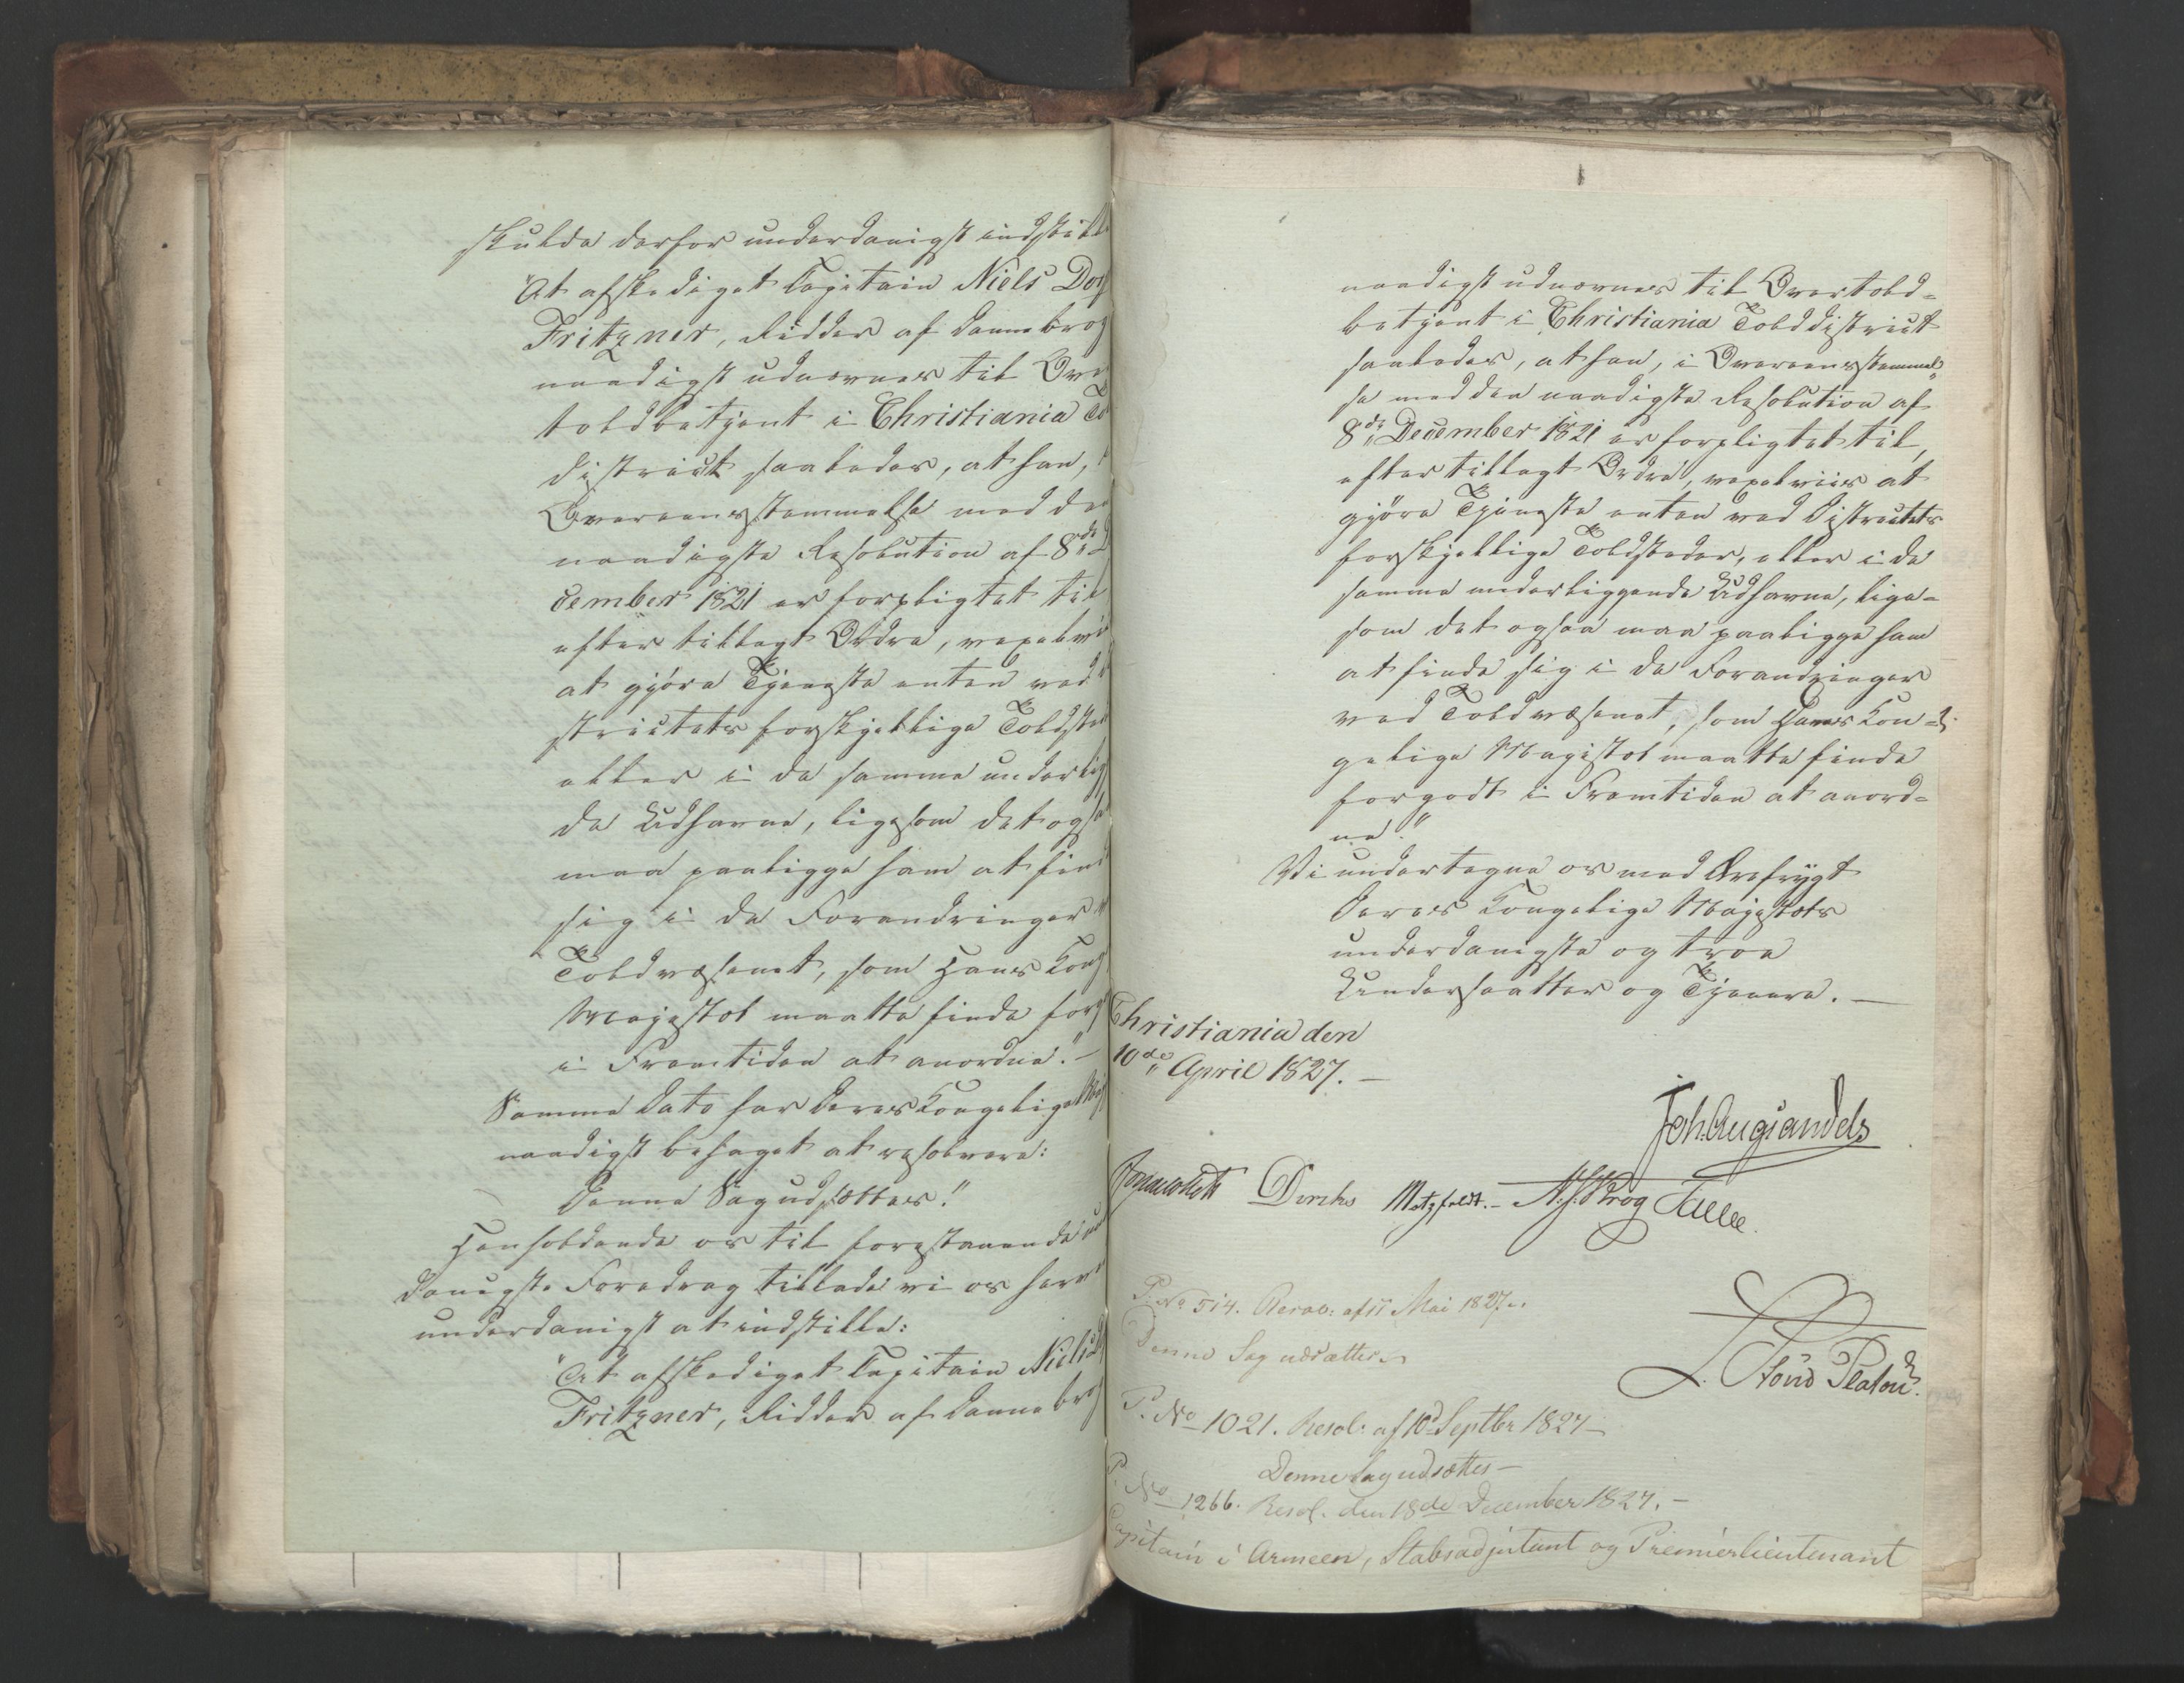 skulde derfor underdanigst indstill
"At afskediget Capitain Niels Dor
Fritzner, Ridder af Dannebrog
naadigst udnævnes til Over
toldbetjent i Christiania To
district saaledes, at han,
Overeensstemmelse med den
naadigste Resolution af 8de De
cember 1821 er forpligtet til
efter tillagt Ordre, vexelvii
at gjöre Tjeneste enten ved
strictets forskjellige Toldsted
eller i de samme underlig
de Udhavne, ligesom det ogsa
maa paaligge ham at find
sig i de Forandringer
Toldvæsenet, som Hans Kong
Majestæt maatte finde forg
i Fremtiden at anordne." –
Samme Dato har Deres Kongelige Maj
naadigst behaget at resolvere:
Denne Sag udsættes!"
Henholdende os til forestaaende un
danigste Foredrag tillade vi os herve
underdanigst at indstille:
"At afskediget Capitain Niels
Fritzner, Ridder af Dannebrog
naadigst udnævnes til Overtold-
betjent i Christiania Tolddistrict
saaledes, at han, i Overeensstemmel-
se med den naadigste Resolution af
8de December 1821 er forpligtet til,
efter tillagt Ordre, vexelviis at
gjöre Tjeneste enten ved Districtets
forskjellige Toldsteder, eller i de
samme underliggende Udhavne, lige-
som det ogsaa maa paaligge ham
at finde sig i de Forandringer
ved Toldvæsenet, som Hans Kon-
gelige Majestæt maatte finde
forgodt i Fremtiden at anord-
ne."
Vi undertegne os med Ærefrygt
Deres Kongelige Majestæts
underdanigste og troe
Undersaatter og Tjenere. –
Christiania den
10de April 1827. –
Joh. Aug. Sandels
Diriks Motzfeldt. – N. J. Krog
L. Stoud Platou
P. No 514. Resol: af 11 Mai 1827.
Denne Sag udsættes
P. No 1021. Resol: af 10d Septbr 1827 –
Denne Sag udsættes –
P. No 1266. Resol. den 18de December 1827. –
Capitain i Armeen, Stabsadjutant og Premierlieutenant